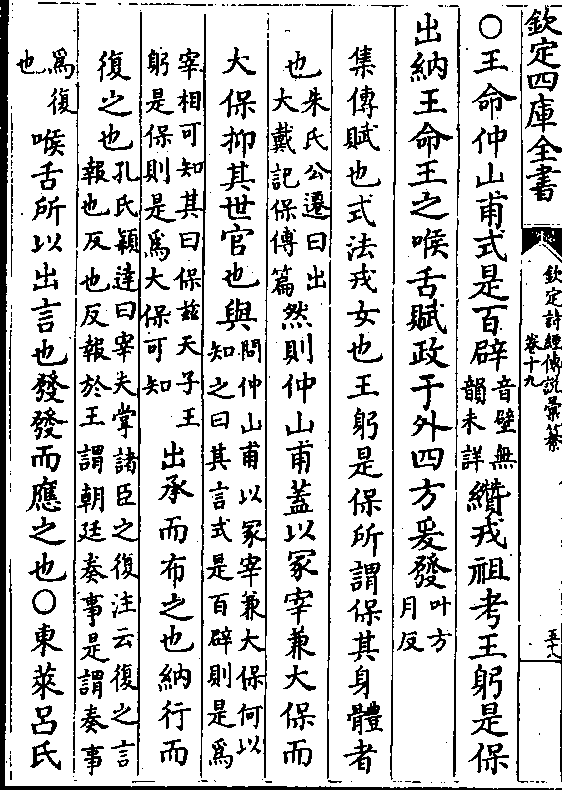 欽定四庫全書
欽定詩經傳說彙纂
卷十九
五十八
○王命仲山甫式是百辟音璧無韻未詳纘戎祖考王躬是保
出納王命王之喉舌賦政于外四方爰發叶方月反
集傳賦也式法戎女也王躬是保所謂保其身體者
也朱氏公遷曰出大戴記保傅篇然則仲山甫蓋以冢宰兼大保而
大保抑其世官也與問仲山甫以冢宰兼大保何以知之曰其言式是百辟則是為
宰相可知其曰保茲天子王躬是保則是為大保可知出承而布之也納行而
復之也孔氏穎達曰宰夫掌諸臣之復注云復之言報也反也反報於王謂朝廷奏事是謂奏事
為復也喉舌所以出言也發發而應之也○東萊呂氏